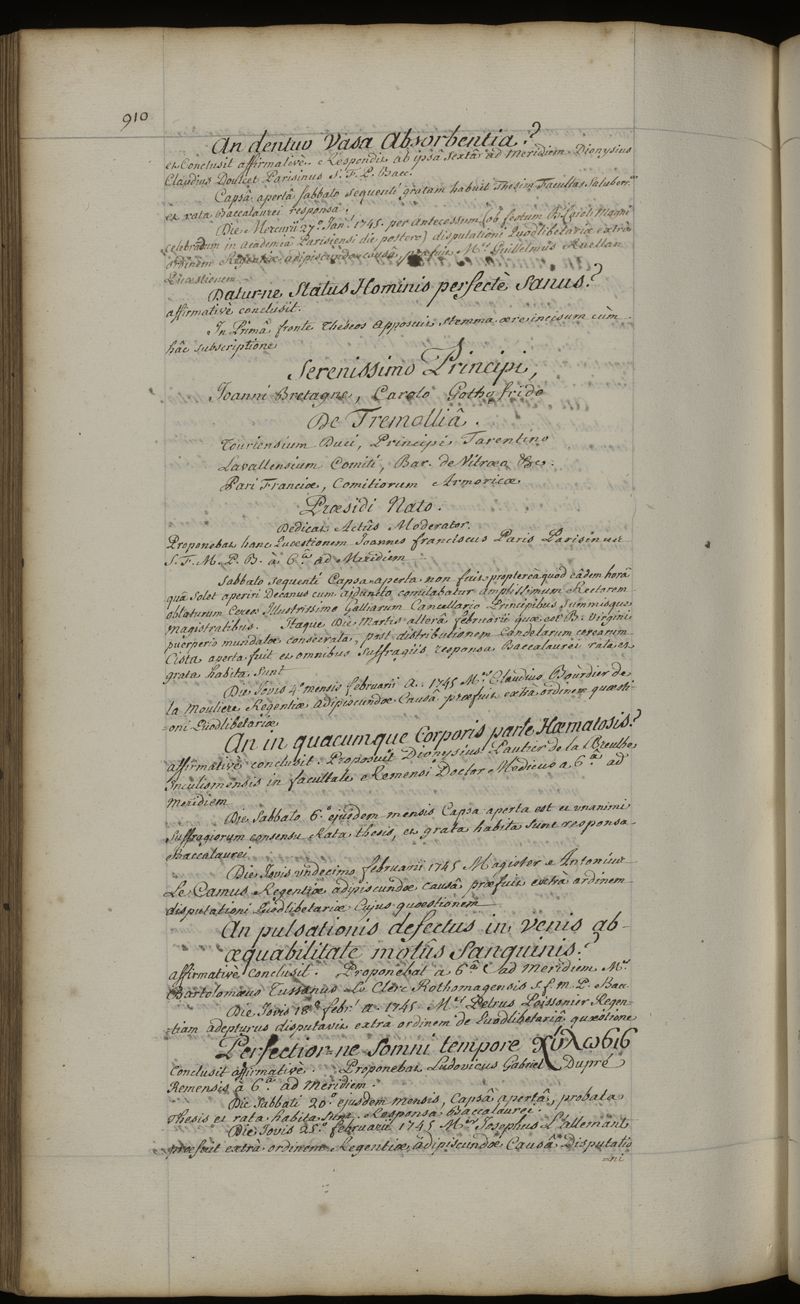 910
An dentur Vasa Absorbentia?
et Conclusit affirmativè. Respondit ab ipsâ sextâ ad Meridiem Dionysius
Claudius Doulcet Parisinus S. F. P. Bacc.
Capsâ apertâ sabbato sequenti gratam habuit Thesim Facultas Saluberr.
et rata Baccalaurei responsa.
Die Mercurii 27.ª Jan.ⁱ 1745. per Antecessum (ob festum B. Caroli Magni
celebradum in Academiâ Parisiensi die postero) disputationi Quodlibetariæ extra
ordinem Regentiæ adipiscundæ causâ, præfuit M.ʳ Guillelmus Ruellan
Quæstionem
Datur-ne Status Hominis perfectè Sanus?
affirmativè conclusit.
In Primâ fronte Theseos apposuit stemma ære incisum cùm
hâc subscriptione
Serenissimo Principi,
Joanni Bretagne, Carolo Gothofrido
De Tremolliâ.
Touriensium Duci, Principi Tarentino
Lavallensium Comiti, Bar. de Vitræa &c.
Pari Franciæ, Comitiorum Armoricæ
Præsidi Nato.
Dedicat Actûs Moderator.
Proponebat hanc Quæstionem Joannes franciscus Paris Parisinus
S. F. M. P. B. à 6.ª ad Meridiem
Sabbato sequenti Capsa aperta non fuit, proptereà quod eâdem horâ
quâ solet aperiri Decanus cum adjuncto comitabatur amplissimum Rectorem
oblaturum Cereos Illustrissimo Galliarum Cancellario Principibus summisque
Magistratibus. Itaque Die Martis alterâ februarii quæ est B. Virgini
puerperio mundatæ consecrata, post distributionem Candelarum cerearum
Cista aperta fuit et omnibus suffragiis responsa Baccalaurei rata et
grata habita sunt
Die Jovis 4.ª mensis februarii A. 1745 M.ʳ Claudius Bourdier de
la Mouliere Regentiæ adipiscundæ Causâ præfuit extra ordinem quæsti-
=oni Quodlibetariæ
An in quacumque Corporis parte Hæmatosis?
affirmativè conclusit. Proposuit Dionysius Pautier de la Breuille
Inculismensis in facultate Remensi Doctor Medicus a 6.ª ad
Meridiem
Die Sabbato 6.º ejusdem mensis Capsa aperta est et unanimi
suffragiorum consensu Rata thesis, et grata habita sunt responsa
Baccalaurei.
Die Jovis undecimo februarii 1745 Magister Antonius
Le Camus Regentiæ adipiscundæ causâ præfuit extrà ordinem
disputationi Quodlibetariæ Cujus quæstionem
An pulsationis defectus in venis ab-
æquabilitate motûs sanguinis?
affirmativè Conclusit. Proponebat a 6.ª ad Meridiem M.ʳ
Bartolomæus Tussanus Le Clerc Rothomagensis s. f. m. P. Bac.
Die Jovis 18.ª febr.ⁱ a. 1745 M.ʳ Petrus Poissonier Regen-
=tiam adepturus disputavit extra ordinem de Quodlibetariâ quæstione
Perfectior-ne Somni tempore
Conclusit affirmativè. Proponebat Ludovicus Gabriel Dupré
Remensis à 6.ª ad Meridiem.
Die Sabbati 20.ª ejusdem mensis, Capsâ apertâ, probata
Thesis et rata habita sunt Responsa Baccalaurei.
Die Jovis 25.ª februarii 1745 M.ᵉʳ Josephus L'allemant
præfuit extrà ordinem Regentiæ adipiscundæ Causâ Disputatio
=ni